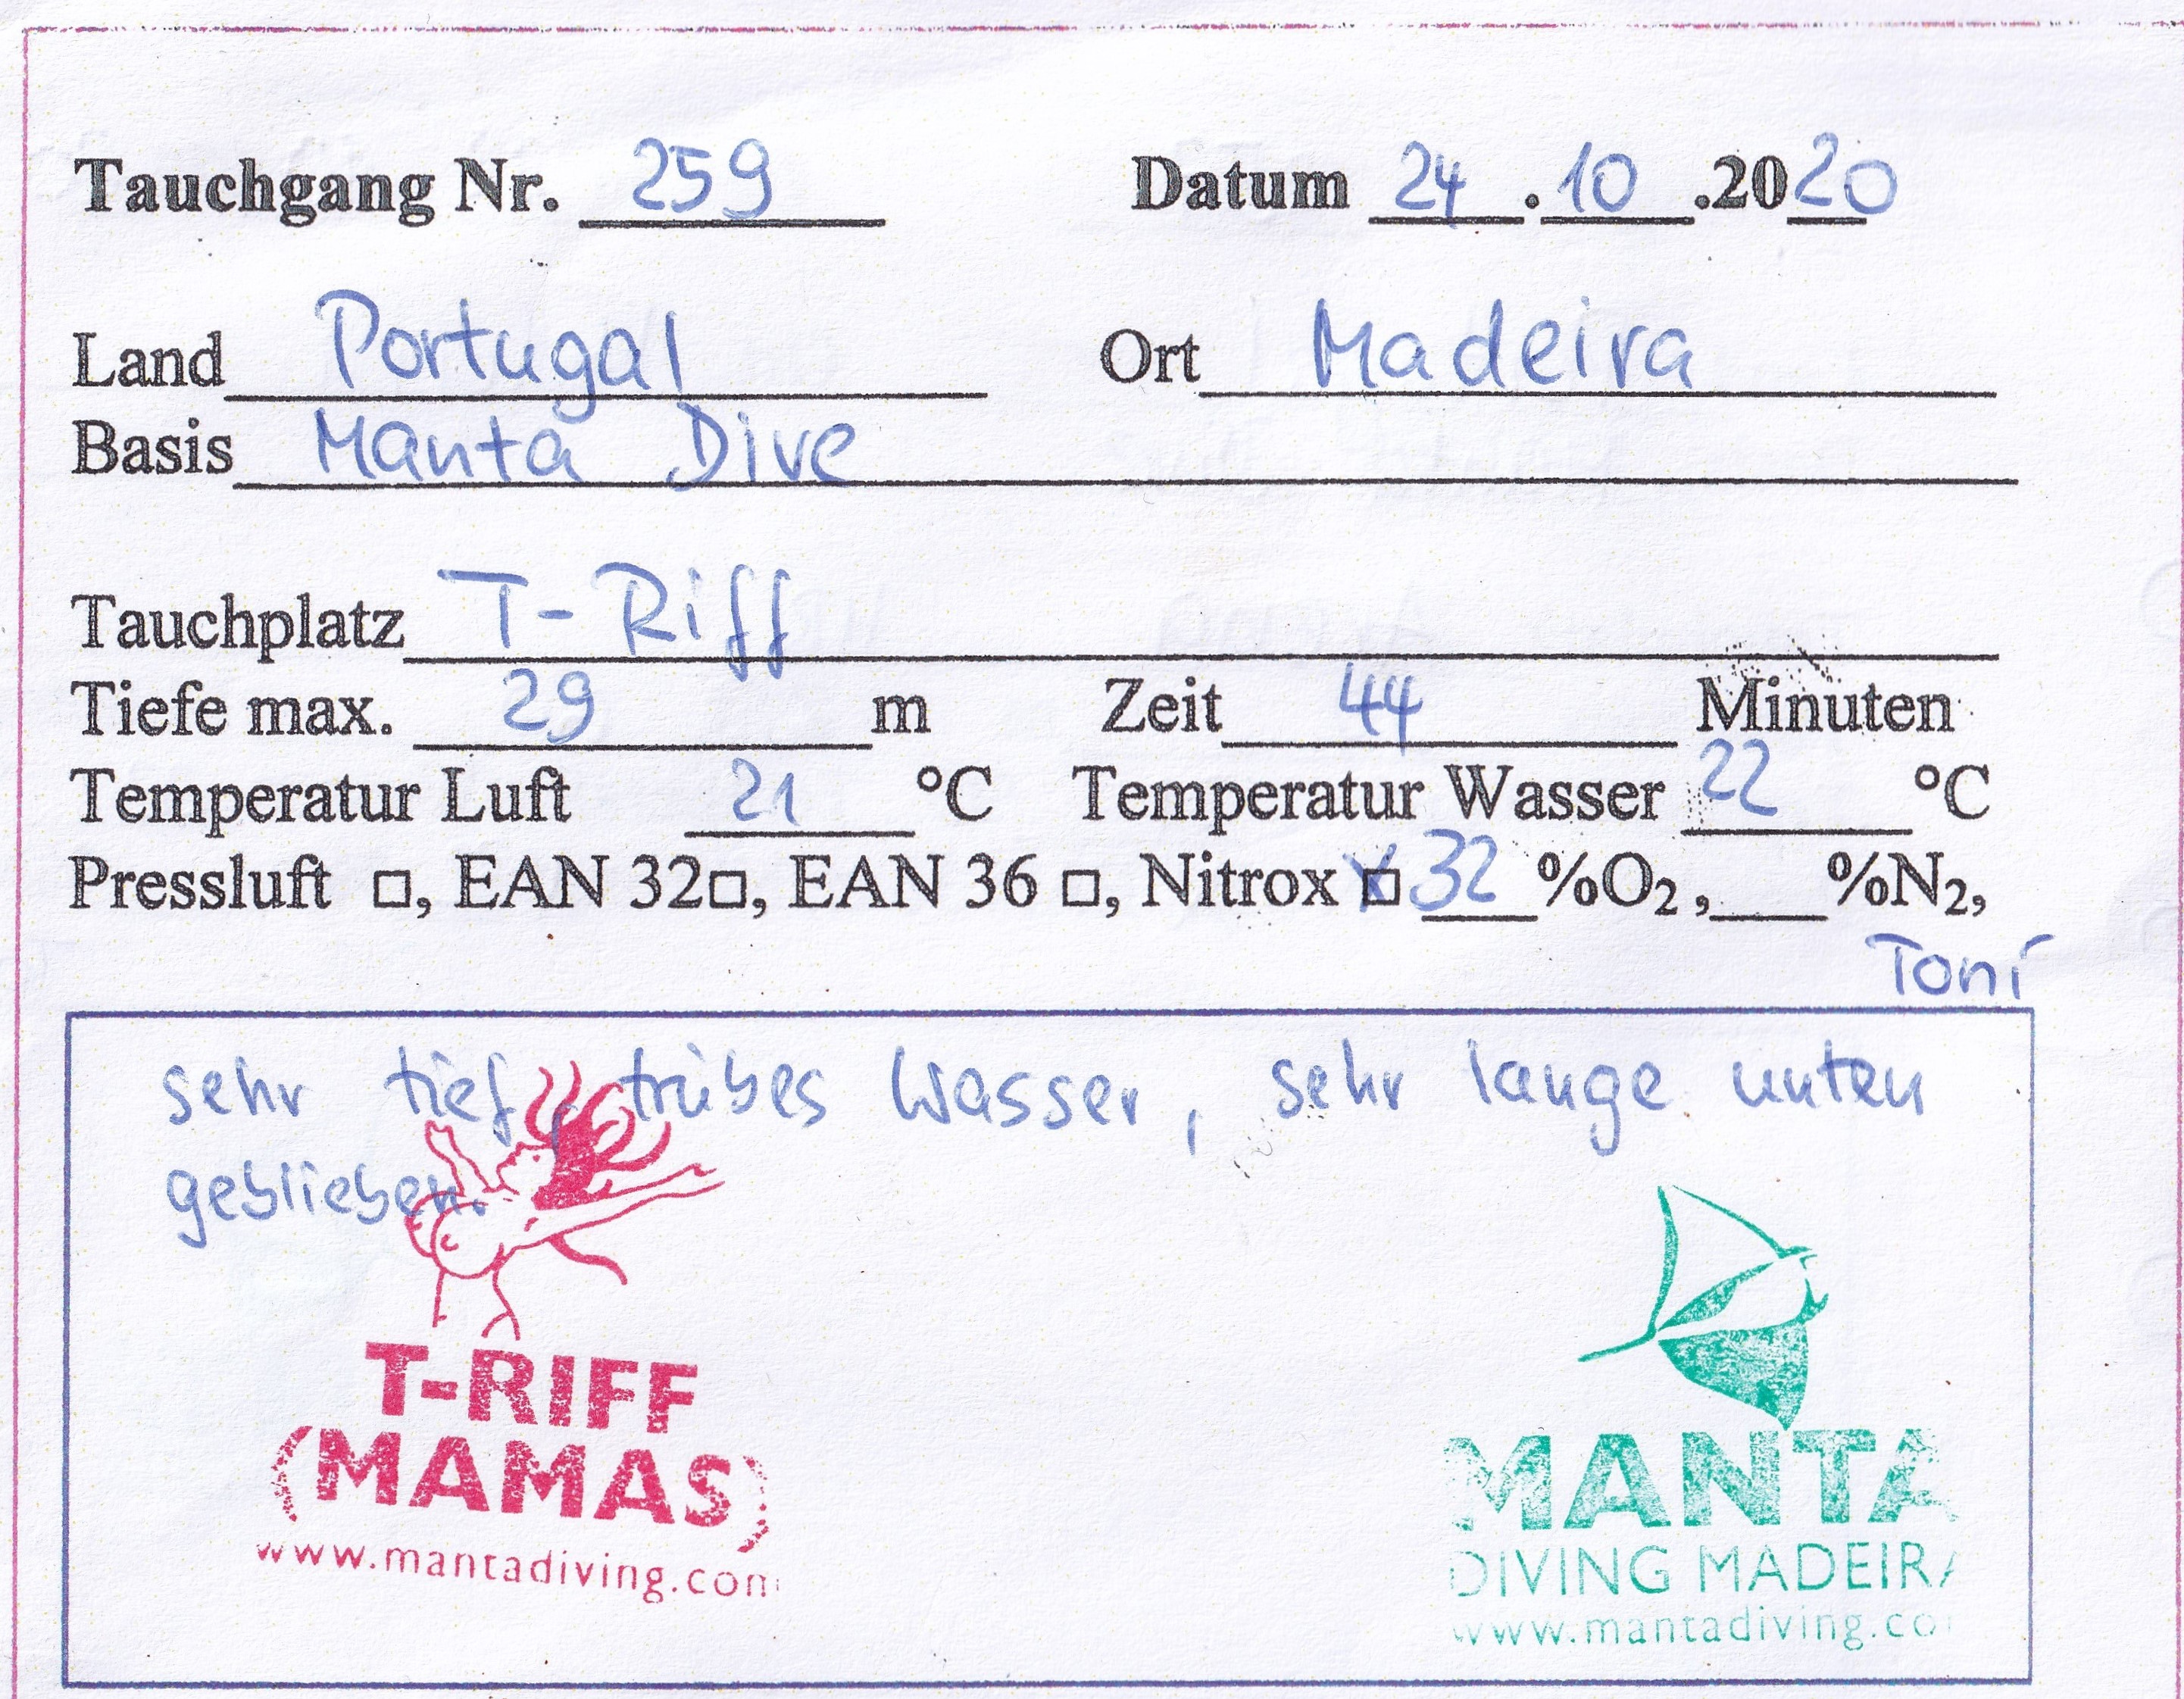 Tauchgang Nr. 259 Datum 24.10.2020
Land Portugal Ort Madeira
Basis Manta Dive
Tauchplatz T-Riff
Tiefe max. 29 m Zeit 44 Minuten
Temperatur Luft 21 °C Temperatur Wasser 22 °C
Pressluft □, EAN 32□, EAN 36 □, Nitrox ☒ 32 %O₂,___%N₂,
Toni
sehr tief, trübes Wasser, sehr lange unten
geblieben.
T-RIFF
(MAMAS)
www.mantadiving.com
MANTA
DIVING MADEIRA
www.mantadiving.co